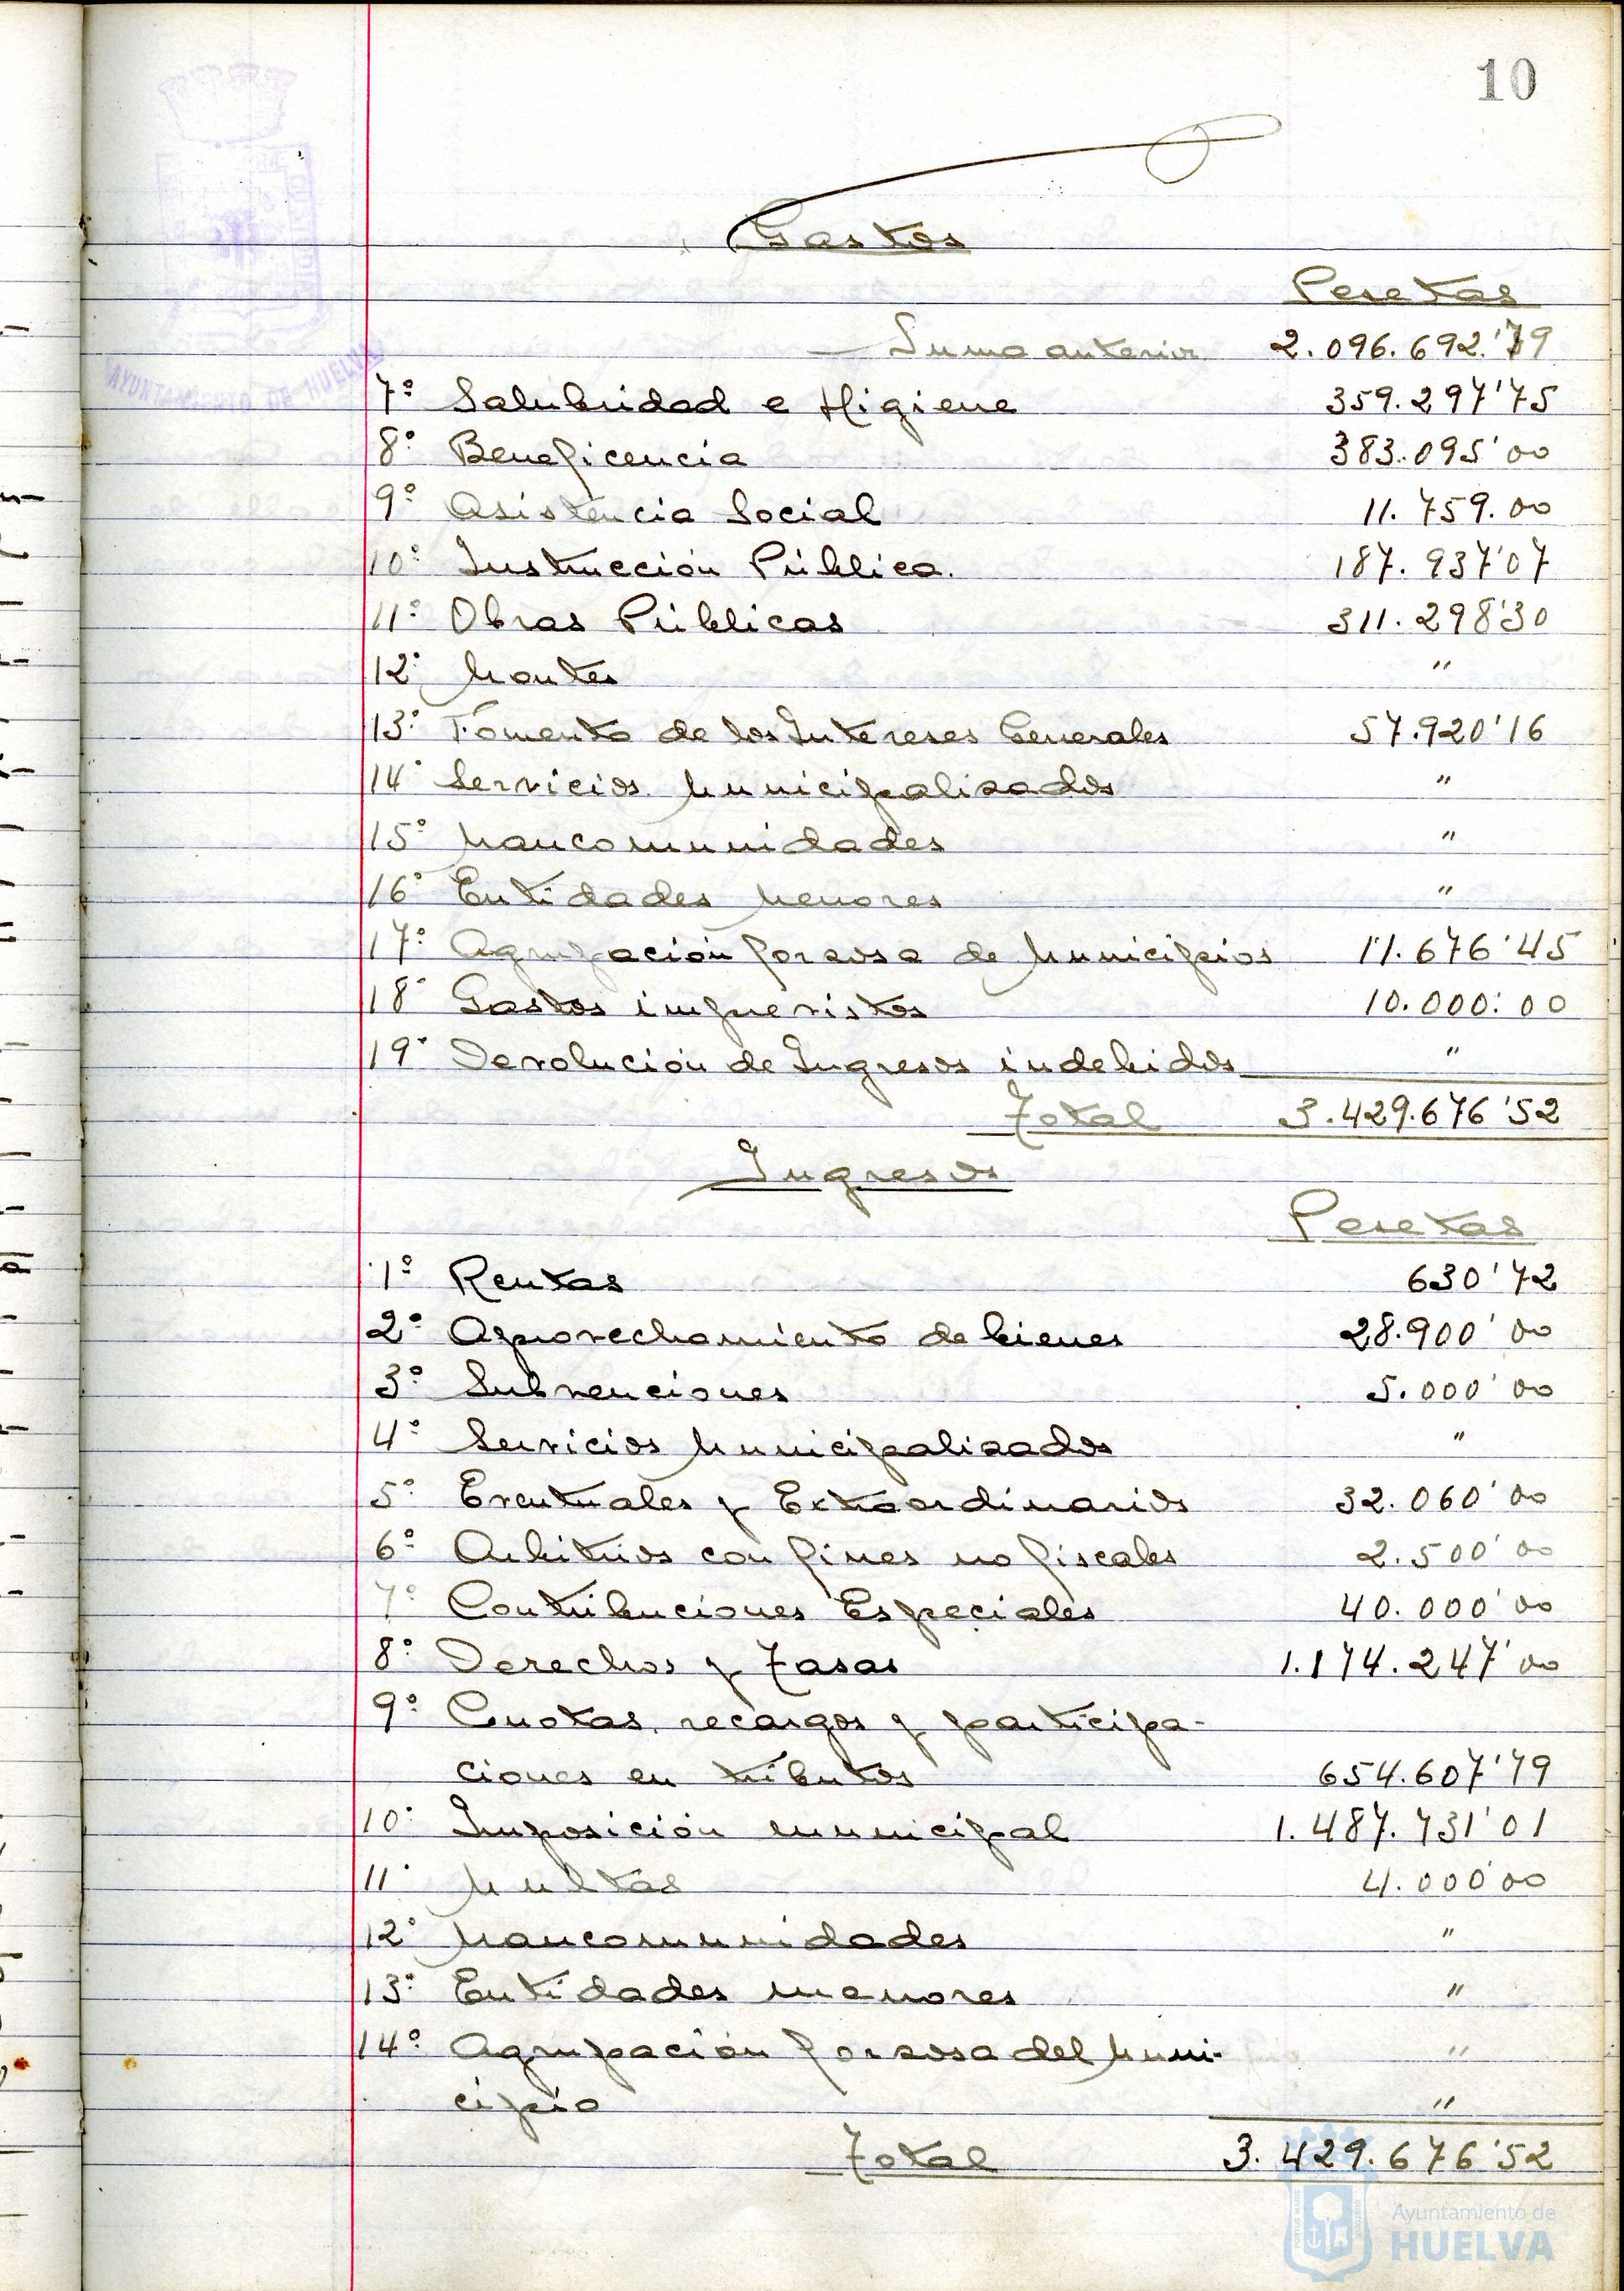 10
Gastos
Pesetas
Suma anterior 2.096.692.'79
7º Salubridad e Higiene 359.297'75
8º Beneficencia 383.095'00
9º Asistencia Social 11.759.00
10º Instrucción Pública. 187.937'07
11º Obras Públicas 311.298'30
12º Montes "
13º Fomento de los Intereses Generales 57.920'16
14º Servicios Municipalizados "
15º Mancomunidades "
16º Entidades Menores "
17º Agrupación forzosa de Municipios 11.676'45
18º Gastos imprevistos 10.000:00
19º Devolución de Ingresos indebidos "
Total 3.429.676'52
Ingresos
Pesetas
1º Rentas 630'72
2º Aprovechamiento de bienes 28.900'00
3º Subvenciones 5.000'00
4º Servicios Municipalizados "
5º Eventuales y Extraordinarios 32.060'00
6º Arbitrios con fines no fiscales 2.500'00
7º Contribuciones Especiales 40.000'00
8º Derechos y Tasas 1.174.247'00
9º Cuotas, recargos y participa-
ciones en tributos 654.607'79
10º Imposición municipal 1.487.731'01
11º Multas 4.000'00
12º Mancomunidades "
13º Entidades menores "
14º Agrupación forzosa del Muni- "
cipio "
Total 3.429.676'52
AYUNTAMIENTO DE HUELVA
Ayuntamiento de
HUELVA